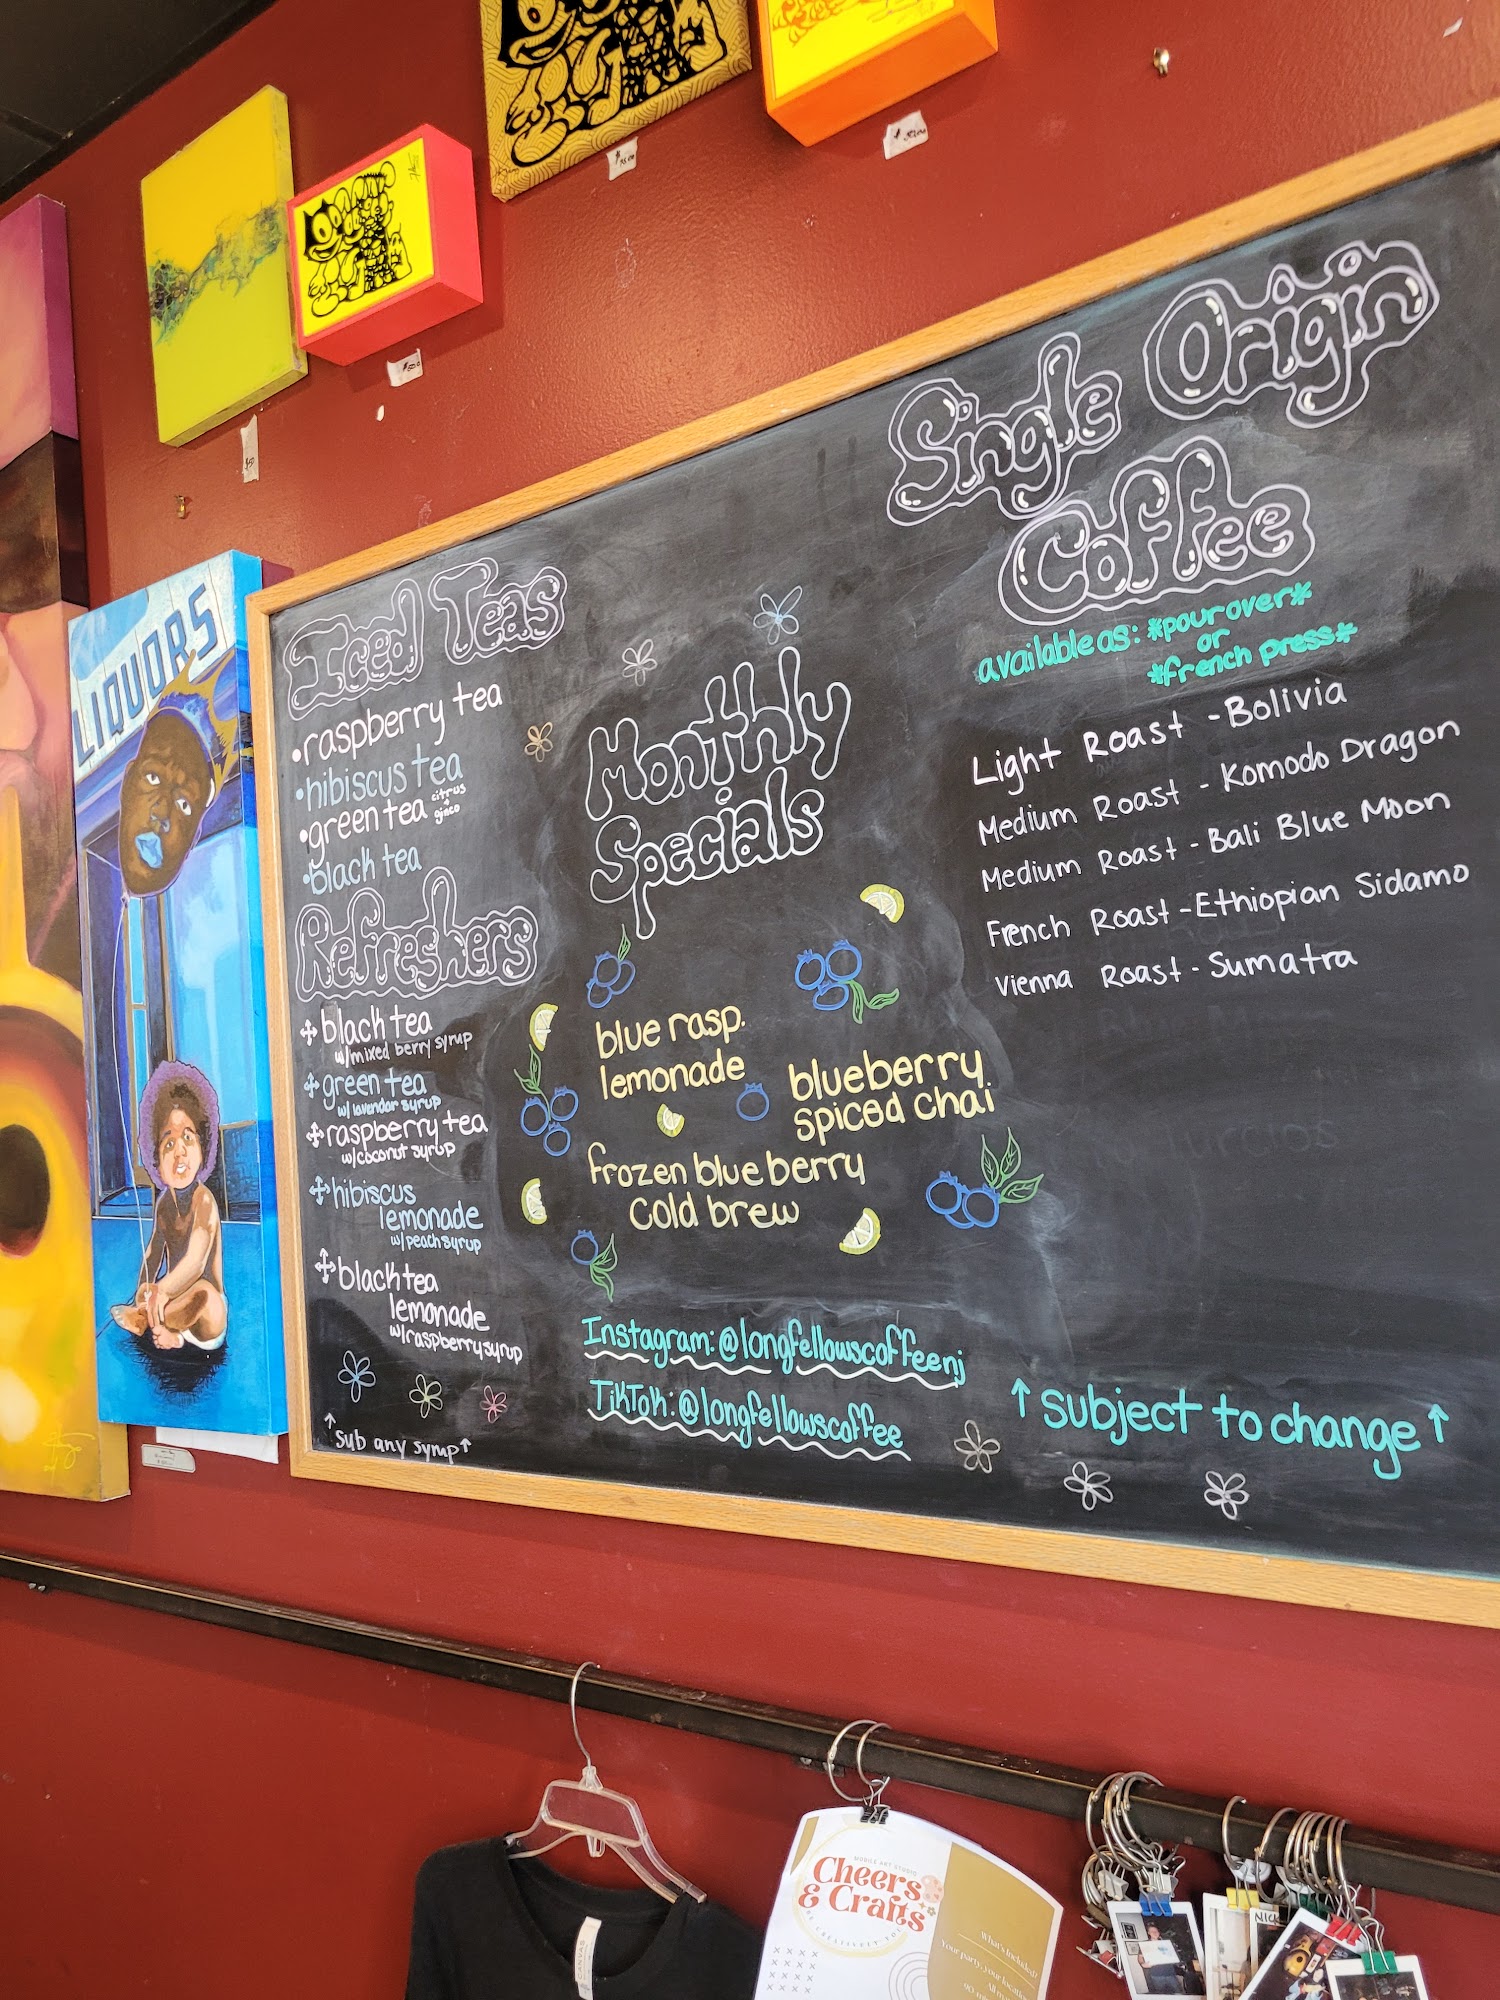 LIQUORS
$50
Iced Teas
•raspberry tea
•hibiscus tea
•green tea citrus + ginco
•black tea
Refreshers
black tea
w/mixed berry syrup
green tea
w/lavendar syrup
raspberry tea
w/coconut syrup
hibiscus
lemonade
w/peach syrup
black tea
lemonade
w/raspberry syrup
↑sub any syrup↑
Monthly
Specials
blue rasp.
lemonade
blueberry
spiced chai
frozen blueberry
cold brew
Instagram: @longfellowscoffeenj
TikTok: @longfellowscoffee
Single Origin
Coffee
available as: *pour over*
or
*french press*
Light Roast - Bolivia
Medium Roast - Komodo Dragon
Medium Roast - Bali Blue Moon
French Roast - Ethiopian Sidamo
Vienna Roast - Sumatra
↑ subject to change ↑
MOBILE ART STUDIO
Cheers
& Crafts
What's Included?
Your party, your location
CANVAS
NICK